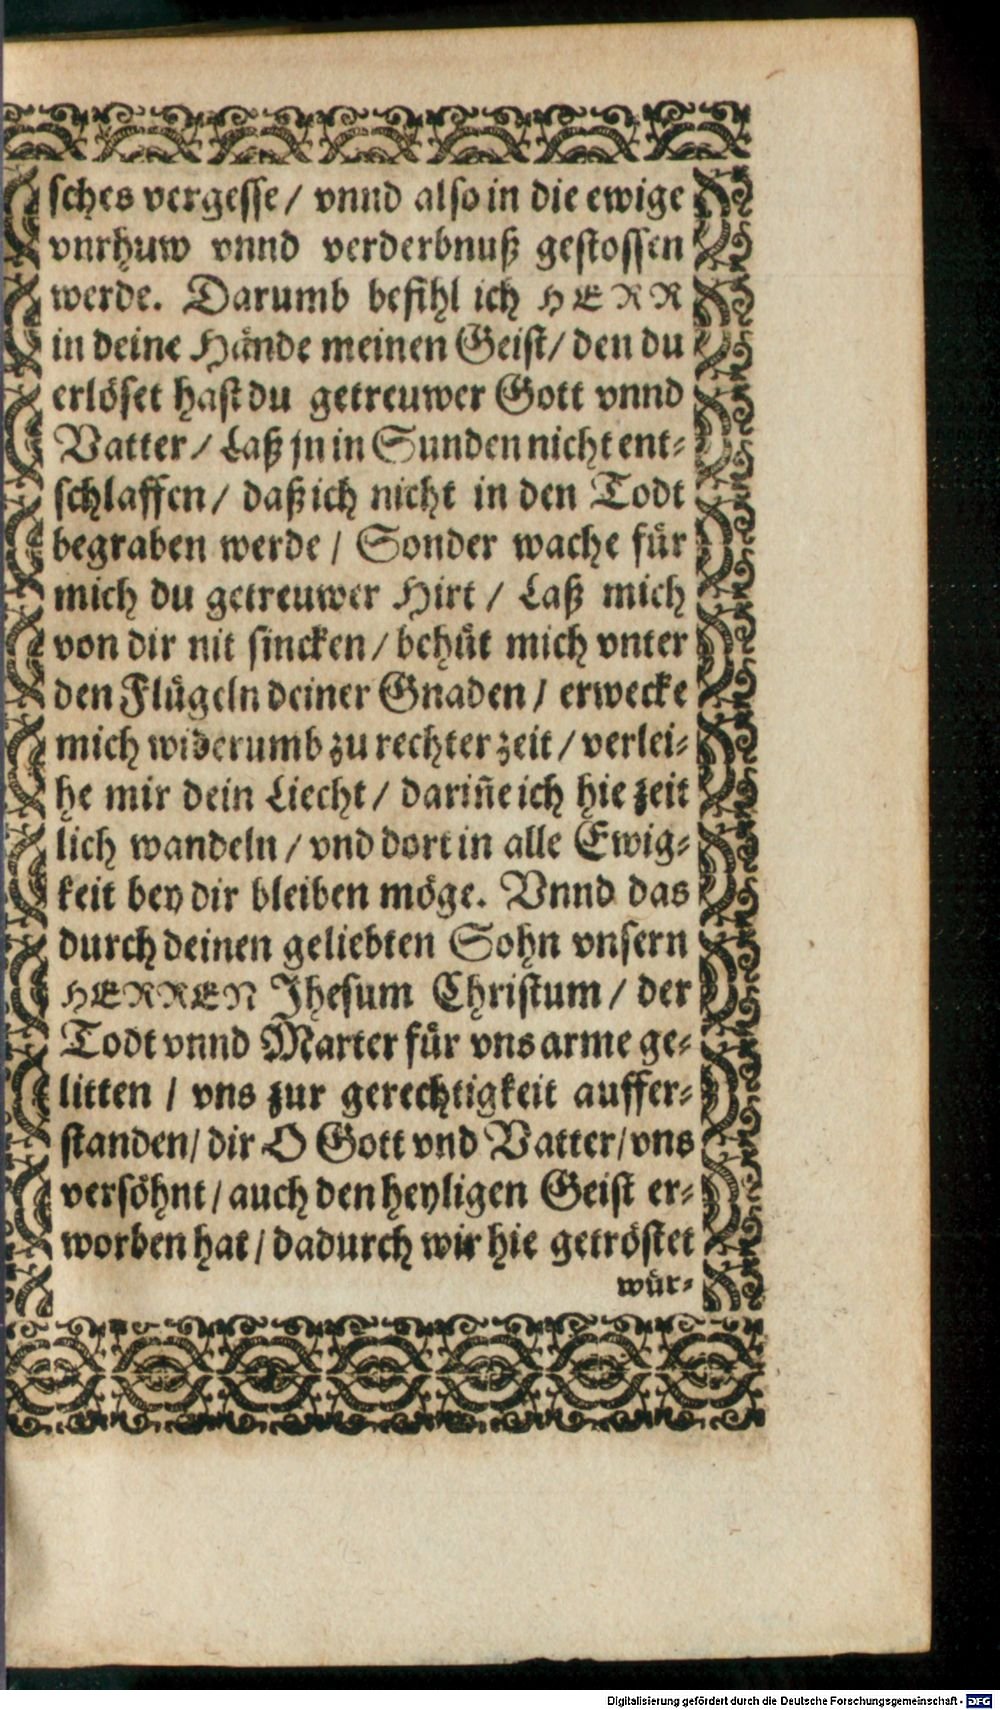 sches vergesse/ vnnd also in die ewige
vnrhuw vnnd verderbnuß gestossen
werde. Darumb befihl ich HERR
in deine Hände meinen Geist/ den du
erlöset hast du getreuwer Gott vnnd
Vatter/ Laß jn in Sunden nicht ent-
schlaffen/ daß ich nicht in den Todt
begraben werde/ Sonder wache für
mich du getreuwer Hirt/ Laß mich
von dir nit sincken/ behüt mich vnter
den Flügeln deiner Gnaden/ erwecke
mich widerumb zu rechter zeit/ verlei-
he mir dein Liecht/ dariñe ich hie zeit
lich wandeln/ vnd dort in alle Ewig-
keit bey dir bleiben möge. Vnnd das
durch deinen geliebten Sohn vnsern
HERREN Jhesum Christum/ der
Todt vnnd Marter für vns arme ge-
litten/ vns zur gerechtigkeit auffer-
standen/ dir O Gott vnd Vatter/ vns
versöhnt/ auch den heyligen Geist er-
worben hat/ dadurch wir hie getröstet
wür-
Digitalisierung gefördert durch die Deutsche Forschungsgemeinschaft - DFG